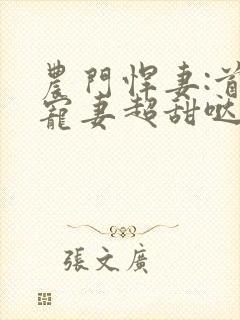 農門悍妻:首
寵妻超甜噠
張文廣